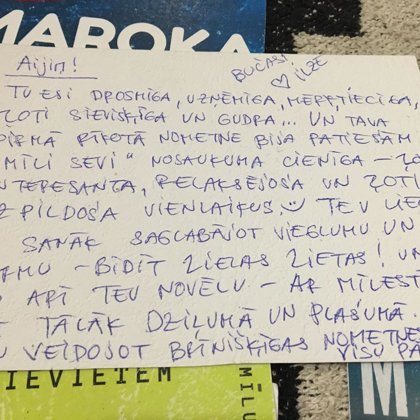 MAROKA
Aijiņ!
BUČAS!
♡ ILZE
TU ESI DROSMĪGA, UZŅĒMĪGA, MĒRĶTIECĪGA,
ĻOTI SIEVIŠĶĪGA UN GUDRA... UN TAVA
PIRMĀ RĪKOTĀ NOMETNE BIJA PATIEŠĀM
MĪLI SEVI" NOSAUKUMA CIENĪGA –
INTERESANTA, RELAKSĒJOŠA UN ĻOTI
PILDOŠA VIENLAIKUS. TEV
SANĀK SAGLABĀJOT VIEGLUMU UN
– BĪDĪT LIELAS LIETAS! UN
ARĪ TEV NOVĒLU – AR MĪLEST
TĀLĀK DZIĻUMĀ UN PLAŠUMĀ.
VEIDOJOT BRĪNIŠĶĪGAS NOMETNES
VISU PA
SIEVIETEM
MĪLU
M